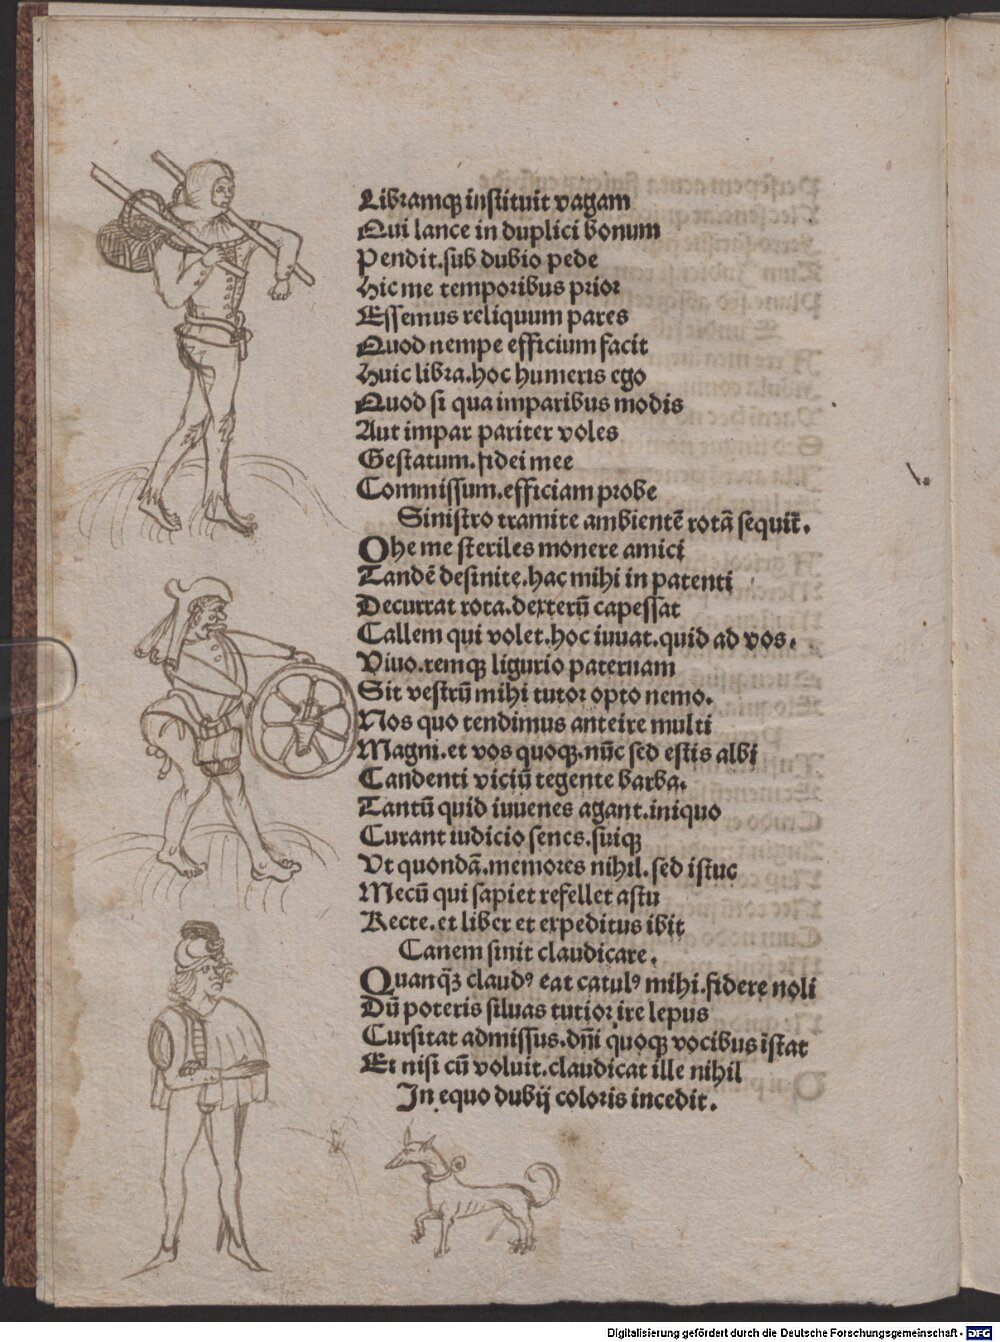 Libramq̄ instituit vagam
Qui lance in duplici bonum
Pendit.sub dubio pede
Hic me temporibus prior
Essemus reliquum pares
Quod nempe efficium facit
Huic libra.hoc humeris ego
Quod si qua imparibus modis
Aut impar pariter voles
Gestatum.fidei mee
Commissum.efficiam probe
Sinistro tramite ambientē rotā sequit̄.
Ohe me steriles monere amici
Tandē desinite.hac mihi in patenti
Decurrat rota.dexterū capessat
Callem qui volet.hoc iuuat.quid ad vos.
Viuo.remq̄ ligurio paternam
Sit vestrū mihi tutor opto nemo.
Nos quo tendimus anteire multi
Magni.et vos quoq̄.nūc sed estis albi
Candenti viciū tegente barba.
Tantū quid iuuenes agant.iniquo
Curant iudicio senes.suiq̄
Vt quondā.memores nihil.sed istuc
Mecū qui sapiet refellet astu
Recte.et liber et expeditus ibit
Canem sinit claudicare.
Quanq̄ꝫ claudꝰ eat catulꝰ mihi.fidere noli
Dū poteris siluas tutior ire lepus
Cursitat admissus.dn̄i quoq̄ vocibus īstat
Et nisi cū voluit.claudicat ille nihil
In equo dubij coloris incedit.
Digitalisierung gefördert durch die Deutsche Forschungsgemeinschaft - DFG